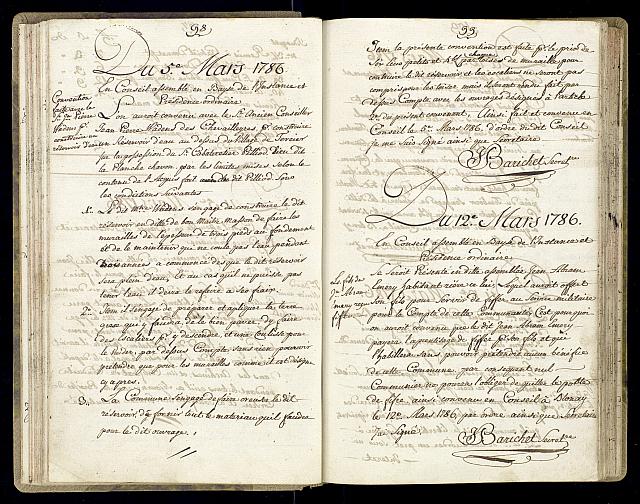 98
Du 5e Mars 1786
En Conseil assemblé en Baysé de l'Instance et
Présidence ordinaire
Convention
faite avec le
Sr. Jn. Pierre
Wudens pr.
construire un
réservoir d'eau
L'on auroit convenu avec le Sr. Ancien Conseiller
Jean Pierre Wudens des Chevalleyres pr. construire
un Réservoir d'eau au dessus du Village de
sur la possession du Sr.
la Planche par les limites mises selon le
contenu de l'acquis fait dit Pilliod. sous
les conditions suivantes
1o. Le dit Mtre. Wudens s'engage de construire le dit
réservoir en ditte de bon Maitre Masson de faire les
murailles de l'epaisseur de trois pieds au fondement
et de le maintenir qui ne coule pas l'eau pendant
trois années a commencé des que le dit réservoir
sera plein d'eau, et au cas qu'il ne puisse pas
tenir l'eau, il devra le refaire a ses frais.
2o. Item s'engage de preparer et apliquer la terre
grasse qui y faudra, de le bien paver, d'y faire
des escaliers pr. y descendre, et une Coulisse pour
le Vuider, par dessus Compte, sans rien pouvoir
pretendre que pour les murailles comme il est désigné
cy apres.
3o. La Commune s'engage de faire creuser le dit
réservoir, de fournir tout le materiaux qu'il faudra
pour le dit ouvrage;
99
Item la présente convention est faite pr. le prix de
chaque toises de murailles pour
contruire le dit réservoir et les escaliers ne seront pas
compris pour les toiser mais ils seront rendu fait par
dessus Compte avec les ouvrages désignés a l'article
2e. du present convenant, Ainsi fait et convenu en
Conseil le 5e. Mars 1786, d'ordre du dit Conseil
je me suis signé ainsi que Secretaire
J. Barichet Secret.re
Du 12e Mars 1786.
En Conseil assemblé en Baysé de l'Instance et
Présidence ordinaire.
Le fils de
Jn. Abram
Emery reçu
fiffre
Se seroit Présenté en ditte assemblée Jean Abram
Emery habitant riere ce lieu, Lequel auroit offert
son fils pour servir de fiffre au service militaire
pour le Compte de cette Communauté, C'est pourquoi
on auroit convenu que le dit Jean Abram Emery
payera l'apentissage de fiffre pr. son fils et que
l'habillera sans pouvoir pretendre aucun benefice
de cette Commune, par consequent nul
Communier ne pourra l'obliger de quitter le poste
de fiffre, ainsi convenu en Conseil à Blonay
le 12e. Mars 1786, par ordre, ainsi que Secretaire
suis Signé.
J. Barichet Secret.re